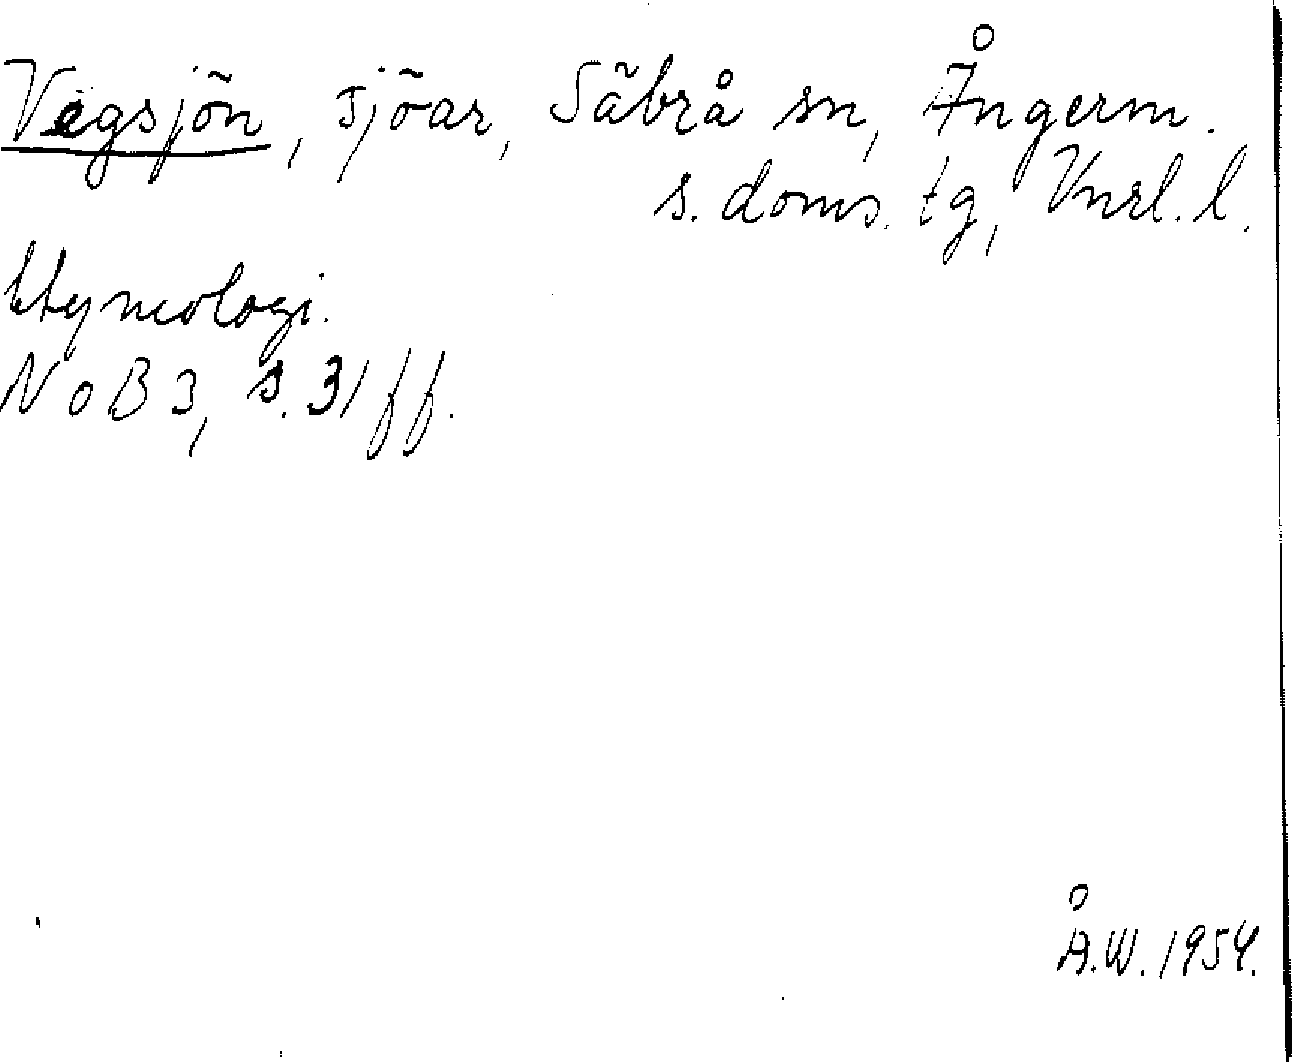 Vegsjön, sjöar, Säbrå sn, Ångerm.
s. doms. tg, Vnrl. l.
Etymologi.
NoB 3, s. 31 ff.
Å.W. 1954.